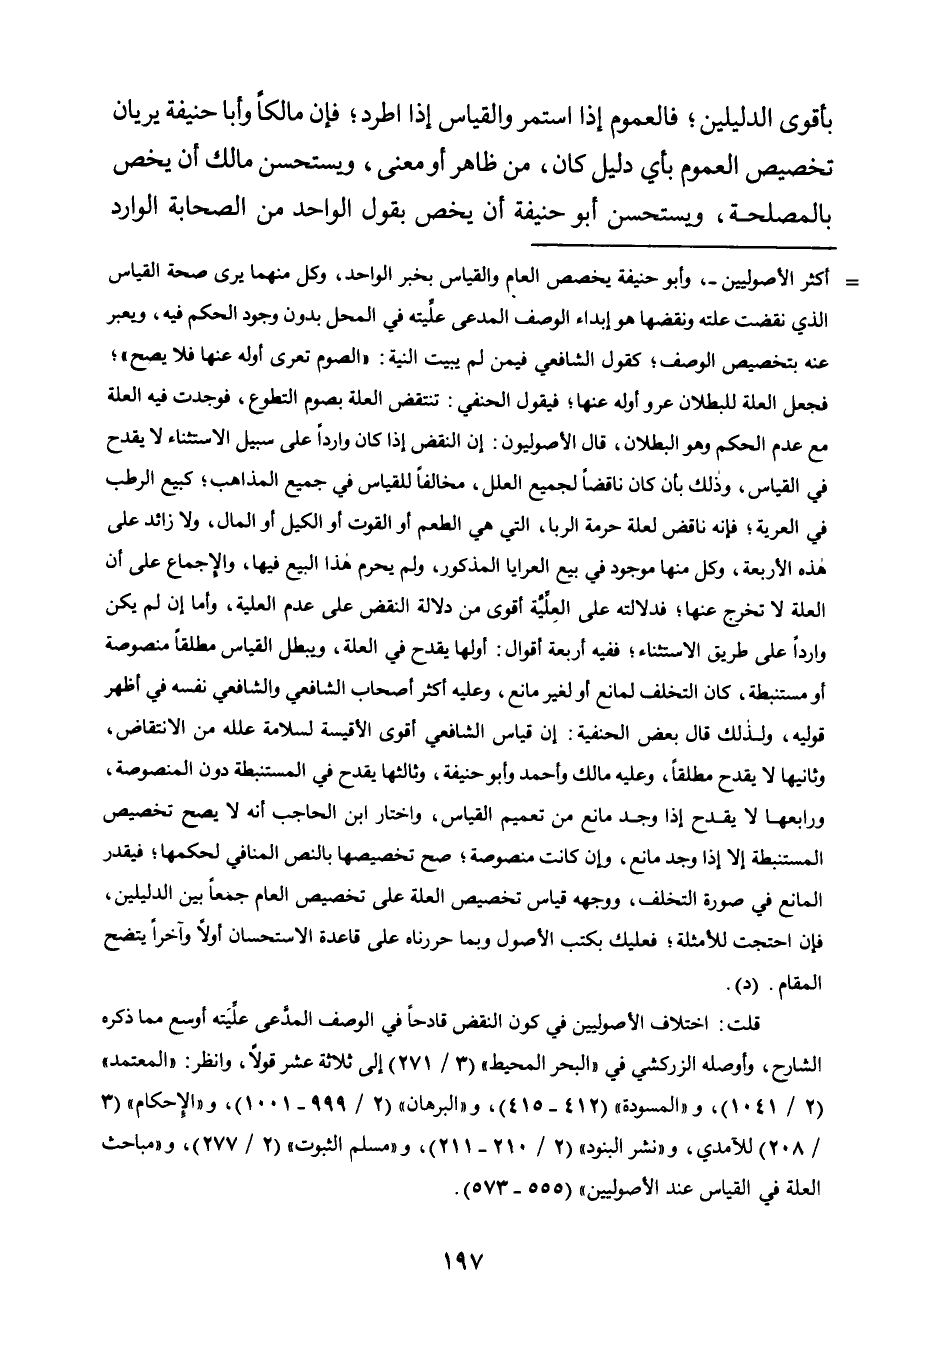 بأقوى الدليلين؛ فالعموم إذا استمر والقياس إذا اطرد؛ فإن مالكاً وأبا حنيفة يريان
تخصيص العموم بأي دليل كان، من ظاهر أو معنى، ويستحسن مالك أن يخص
بالمصلحة، ويستحسن أبو حنيفة أن يخص بقول الواحد من الصحابة الوارد
= أكثر الأصوليين -، وأبو حنيفة يخصص العام والقياس بخبر الواحد، وكل منهما يرى صحة القياس
الذي نقضت علته ونقضها هو إبداء الوصف المدعى علِّيته في المحل بدون وجود الحكم فيه، ويعبر
عنه بتخصيص الوصف؛ كقول الشافعي فيمن لم يبيت النية: «الصوم تعرى أوله عنها فلا يصح»؛
فجعل العلة للبطلان عرو أوله عنها؛ فيقول الحنفي: تنتقض العلة بصوم التطوع، فوجدت فيه العلة
مع عدم الحكم وهو البطلان، قال الأصوليون: إن النقض إذا كان وارداً على سبيل الاستثناء لا يقدح
في القياس، وذٰلك بأن كان ناقضاً لجميع العلل، مخالفاً للقياس في جميع المذاهب؛ كبيع الرطب
في العرية؛ فإنه ناقض لعلة حرمة الربا، التي هي الطعم أو القوت أو الكيل أو المال، ولا زائد على
هٰذه الأربعة، وكل منها موجود في بيع العرايا المذكور، ولم يحرم هٰذا البيع فيها، والإجماع على أن
العلة لا تخرج عنها؛ فدلالته على العِلِّيَّة أقوى من دلالة النقض على عدم العلية، وأما إن لم يكن
وارداً على طريق الاستثناء؛ ففيه أربعة أقوال: أولها يقدح في العلة، ويبطل القياس مطلقاً منصوصة
أو مستنبطة، كان التخلف لمانع أو لغير مانع، وعليه أكثر أصحاب الشافعي والشافعي نفسه في أظهر
قوليه، ولذٰلك قال بعض الحنفية: إن قياس الشافعي أقوى الأقيسة لسلامة علله من الانتقاض،
وثانيها لا يقدح مطلقاً، وعليه مالك وأحمد وأبو حنيفة، وثالثها يقدح في المستنبطة دون المنصوصة،
ورابعها لا يقدح إذا وجد مانع من تعميم القياس، واختار ابن الحاجب أنه لا يصح تخصيص
المستنبطة إلا إذا وجد مانع، وإن كانت منصوصة؛ صح تخصيصها بالنص المنافي لحكمها؛ فيقدر
المانع في صورة التخلف، ووجهه قياس تخصيص العلة على تخصيص العام جمعاً بين الدليلين،
فإن احتجت للأمثلة؛ فعليك بكتب الأصول وبما حررناه على قاعدة الاستحسان أولاً وآخراً يتضح
المقام. (د).
قلت: اختلاف الأصوليين في كون النقض قادحاً في الوصف المدَّعى علِّيَته أوسع مما ذكره
الشارح، وأوصله الزركشي في «البحر المحيط» (٣ / ٢٧١) إلى ثلاثة عشر قولاً، وانظر: «المعتمد»
(٢ / ١٠٤١)، و «المسودة» (٤١٢ - ٤١٥)، و «البرهان» (٢ / ٩٩٩ - ١٠٠١)، و «الإحكام» (٣
/ ٢٠٨) للآمدي، و «نشر البنود» (٢ / ٢١٠ - ٢١١)، و «مسلم الثبوت» (٢ / ٢٧٧)، و «مباحث
العلة في القياس عند الأصوليين» (٥٥٥ - ٥٧٣).
١٩٧